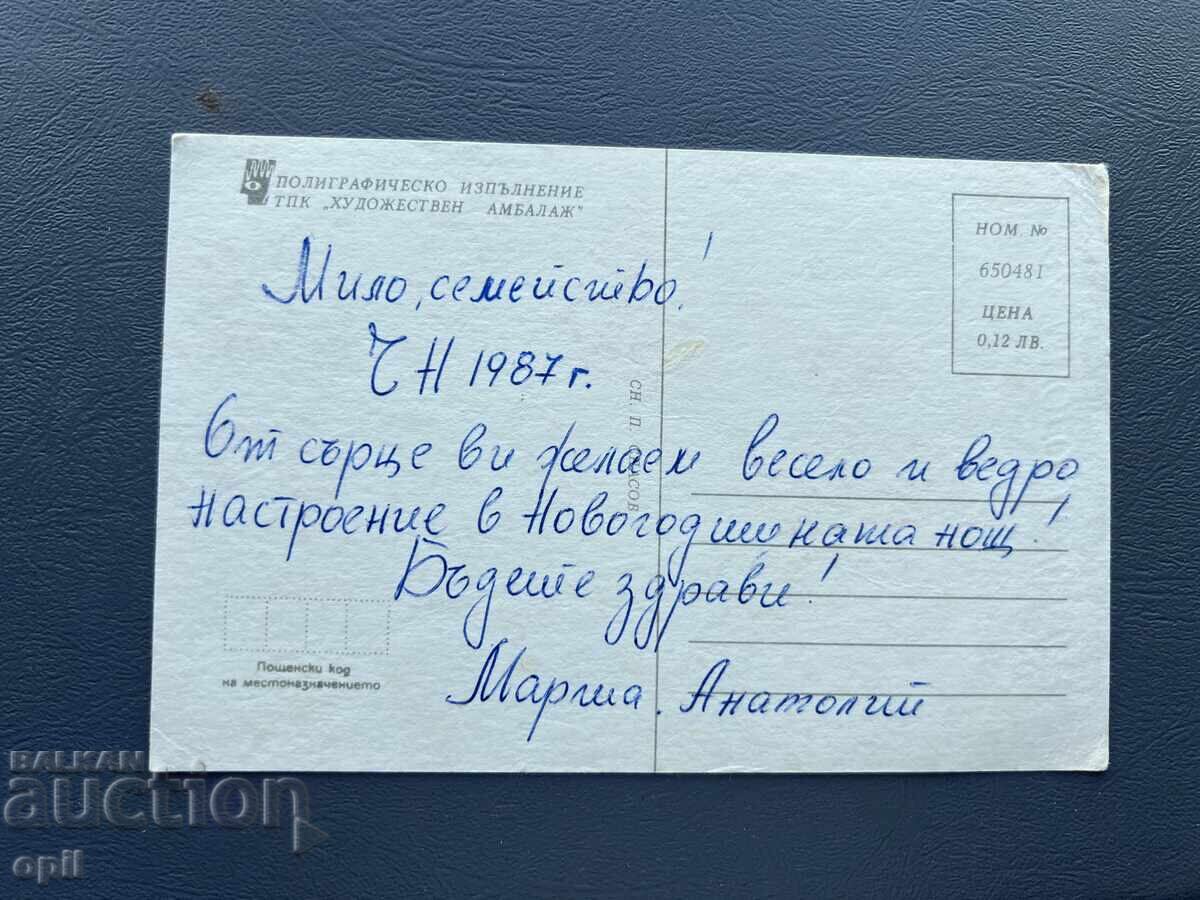 ПОЛИГРАФИЧЕСКО ИЗПЪЛНЕНИЕ
ТПК „ХУДОЖЕСТВЕН АМБАЛАЖ"
НОМ. №
650481
ЦЕНА
0,12 ЛВ.
Мило, семейство!
ЧН 1987 г.
От сърце ви желаем весело и ведро
настроение в Новогодишната нощ!
Бъдете здрави!
Маргиа. Анатолий
СН. П.
Пощенски код
на местоназначението
BALKAN
auction
opil